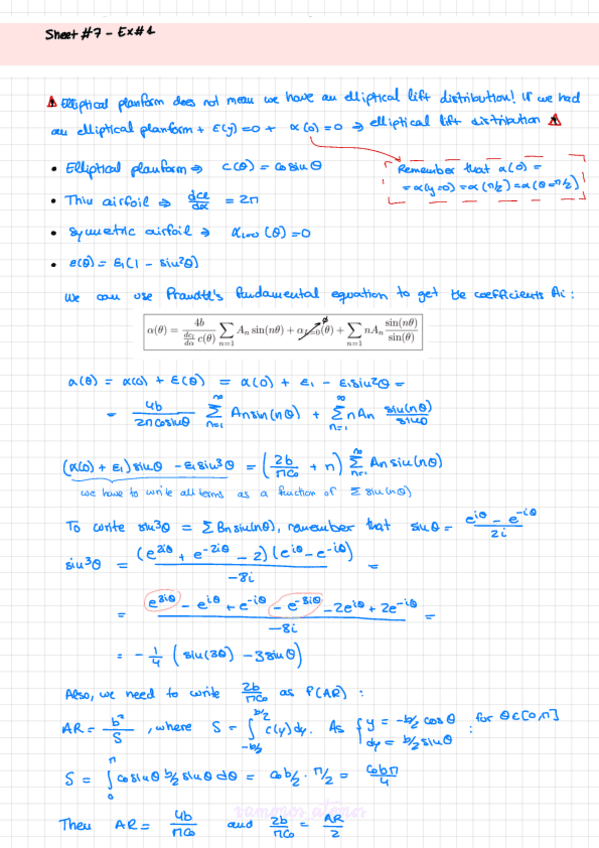 Sheet #7 - Ex#1
⚠ Elliptical planform does not mean we have an elliptical lift distribution! If we had
an elliptical planform + ε(y)=0 + α(0)=0 ⇒ elliptical lift distribution ⚠
• Elliptical planform ⇒ c(θ) = c0 sin θ
Remember that α(0) =
= α(y=0) = α(π/2) = α(θ=π/2)
• Thin airfoil ⇒ dcl/dα = 2π
• Symmetric airfoil ⇒ αl=0 (θ) = 0
• ε(θ) = ε1(1 - sin²θ)
We can use Prandtl's fundamental equation to get the coefficients Ai:
α(θ) = 4b / (dcl/dα c(θ)) ∑n=1 An sin(nθ) + αL=0(θ) + ∑n=1 nAn sin(nθ)/sin(θ)
α(θ) = α(0) + ε(θ) = α(0) + ε1 - ε1 sin²θ =
= 4b/(2π c0 sin θ) ∑n=1^∞ An sin(nθ) + ∑n=1^∞ n An sin(nθ)/sin θ
(α(0) + ε1) sin θ - ε1 sin³θ = (2b/(πc0) + n) ∑n=1^∞ An sin(nθ)
we have to write all terms as a function of ∑ sin(nθ)
To write sin³θ = ∑ Bn sin(nθ), remember that sin θ = (e^iθ - e^-iθ)/2i
sin³θ = (e^2iθ + e^-2iθ - 2)(e^iθ - e^-iθ)/-8i =
= (e^3iθ - e^iθ + e^-iθ - e^-3iθ - 2e^iθ + 2e^-iθ)/-8i =
= - 1/4 (sin(3θ) - 3 sin θ)
Also, we need to write 2b/πc0 as f(AR) :
AR = b²/S , where S = ∫-b/2^b/2 c(y)dy. As { y = -b/2 cos θ dy = b/2 sin θ ; for θ∈[0,π]
S = ∫0^π c0 sin θ b/2 sin θ dθ = c0 b/2 · π/2 = c0bπ/4
Then AR = 4b/πc0 and 2b/πc0 = AR/2